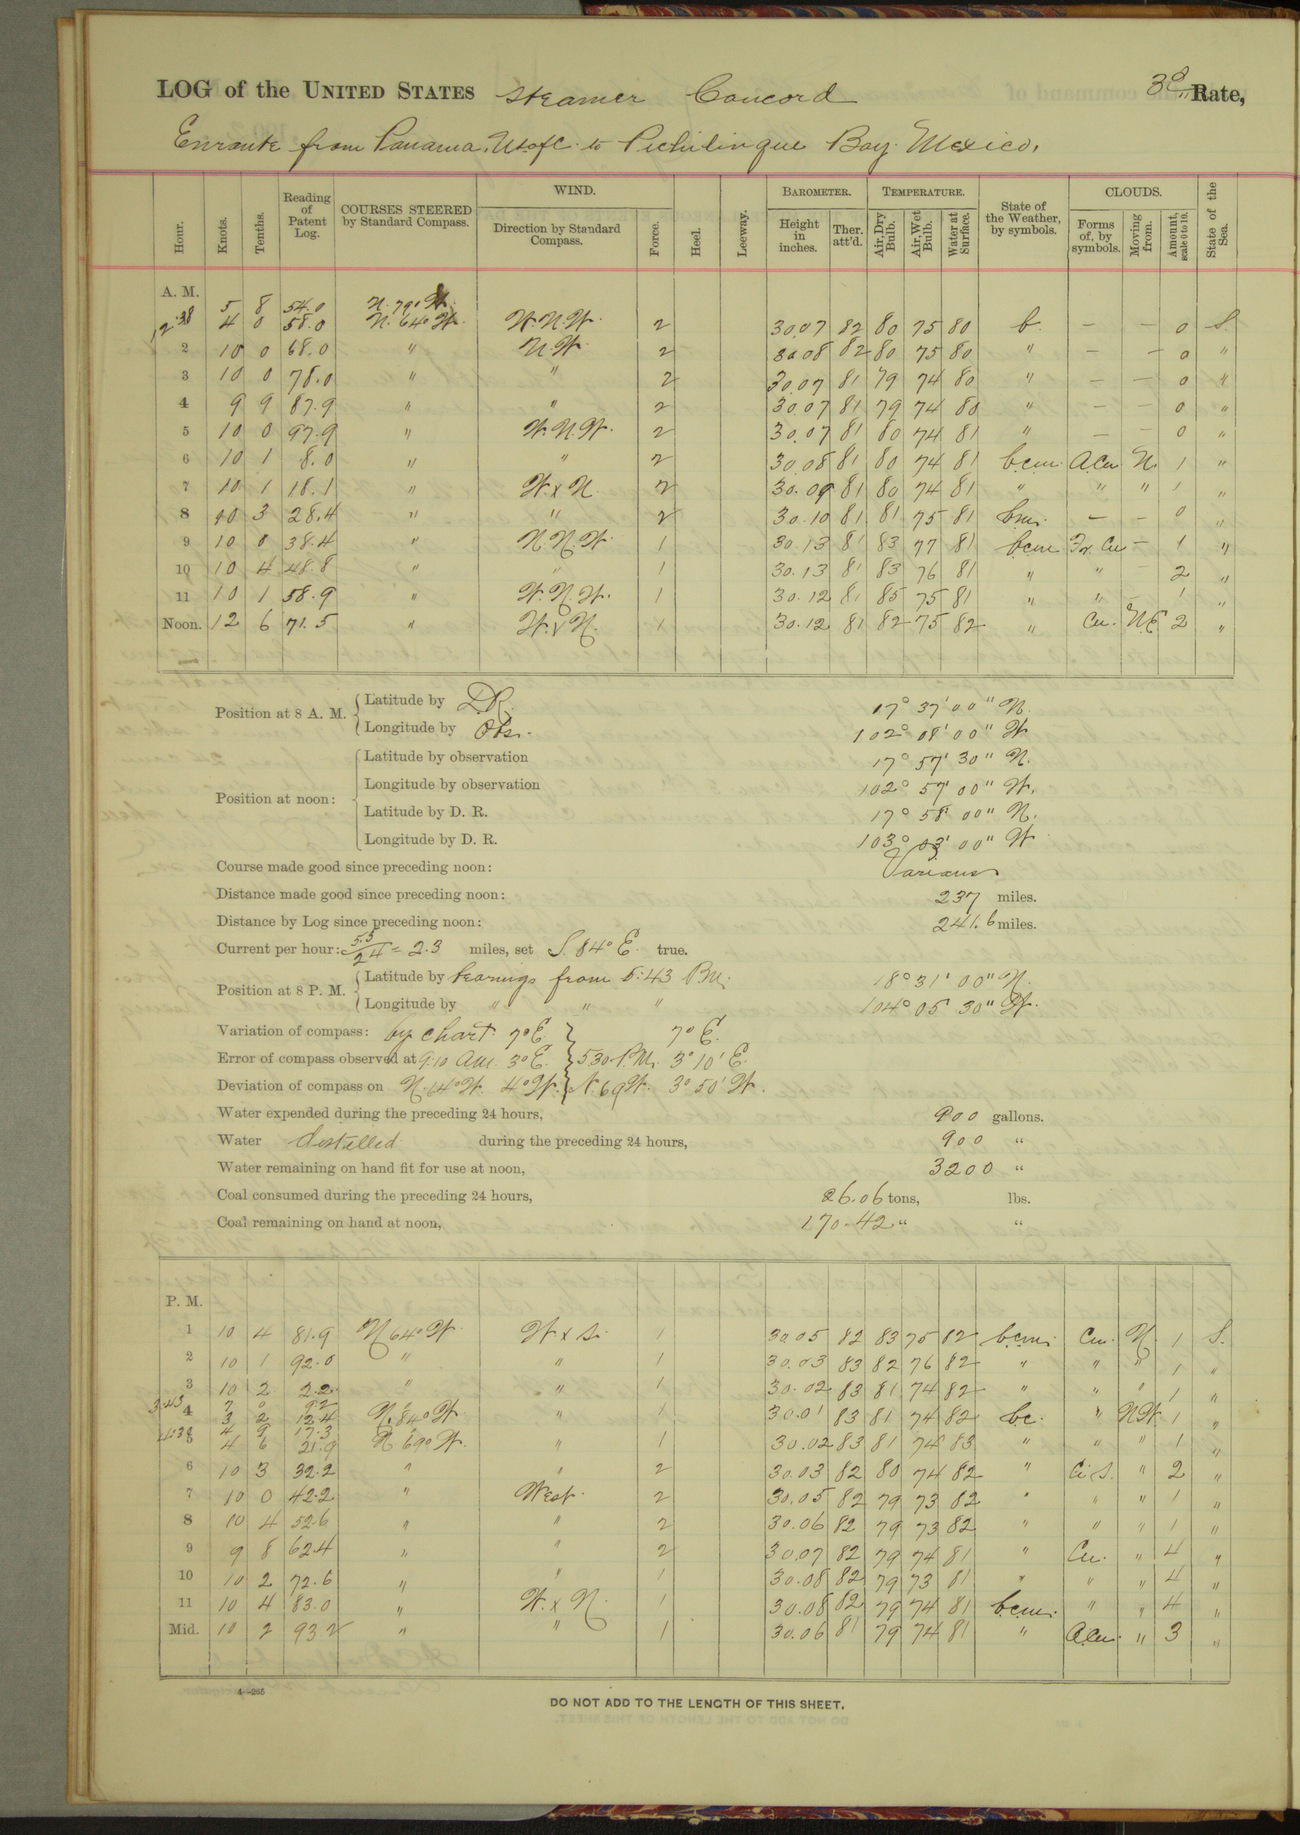 LOG of the UNITED STATES Steamer Concord 3d Rate,
Enroute from Panama, U.S. of C. to Pichilinque Bay Mexico.
Hour. Knots. Tenths. Reading of Patent Log. COURSES STEERED by Standard Compass. WIND. Direction by Standard Compass. Force. Heel. Leeway. BAROMETER. Height in inches. Ther. att'd. TEMPERATURE. Air, Dry Bulb. Air, Wet Bulb. Water at Surface. State of the Weather, by symbols. CLOUDS. Forms of, by symbols. Moving from. Amount, scale 0 to 10. State of the Sea.
A. M.
5 8 54.0 N. 79° W.
12:38 4 0 58.0 N. 64° W. W.N.W. 2 30.07 82 80 75 80 b. — — 0 S.
2 10 0 68.0 " N.W. 2 30.08 82 80 75 80 " — — 0 "
3 10 0 78.0 " " 2 30.07 81 79 74 80 " — — 0 "
4 9 9 87.9 " " 2 30.07 81 79 74 80 " — — 0 "
5 10 0 97.9 " W.N.W. 2 30.07 81 80 74 81 " — — 0 "
6 10 1 8.0 " " 2 30.08 81 80 74 81 b.c.m. A.Cu. N. 1 "
7 10 1 18.1 " W. x N. 2 30.09 81 80 74 81 " " " 1 "
8 10 3 28.4 " " 2 30.10 81 81 75 81 b.m. — — 0 "
9 10 0 38.4 " N.N.W. 1 30.13 81 83 77 81 b.c.m. Fr. Cu — 1 "
10 10 4 48.8 " " 1 30.13 81 83 76 81 " " — 2 "
11 10 1 58.9 " W.N.W. 1 30.12 81 85 75 81 " " — 1 "
Noon. 12 6 71.5 " W. x N. 1 30.12 81 82 75 82 " Cu. N.E. 2 "
Position at 8 A. M. Latitude by D.R. 17° 37' 00" N.
Longitude by Obs. 102° 08' 00" W
Position at noon: Latitude by observation 17° 57' 30" N.
Longitude by observation 102° 57' 00" W.
Latitude by D. R. 17° 58' 00" N.
Longitude by D. R. 103° 03' 00" W
Course made good since preceding noon: Various
Distance made good since preceding noon: 237 miles.
Distance by Log since preceding noon: 241.6 miles.
Current per hour: 5.5/24 = 2.3 miles, set S. 84° E. true.
Position at 8 P. M. Latitude by bearings from 5:43 18° 31' 00" N.
Longitude by " " " 104° 05' 30" W.
Variation of compass: by chart. 7° E. } 7° E.
Error of compass observed at 9:10 A.M. 3° E. } 5.30. P.M. 3° 10' E.
Deviation of compass on N. 64° W. 4° W. } N. 69 W. 3° 50' W.
Water expended during the preceding 24 hours, 900 gallons.
Water distilled during the preceding 24 hours, 900 "
Water remaining on hand fit for use at noon, 3200 "
Coal consumed during the preceding 24 hours, 26.06 tons, lbs.
Coal remaining on hand at noon, 170.42 " "
P. M.
1 10 4 81.9 N 64° W. W. x S. 1 30.05 82 83 75 82 b.c.m. Cu. N. 1 S.
2 10 1 92.0 " " 1 30.03 83 82 76 82 " " " 1 "
3 10 2 2.2 " " 1 30.02 83 81 74 82 " " " 1 "
3:43 7 0 9.2 "
4 3 2 12.4 N. 84° W. " 1 30.01 83 81 74 82 bc. " N.W. 1 "
4 9 17.3 "
5 4 6 21.9 N 69° W. " 1 30.02 83 81 74 83 " " " 1 "
6 10 3 32.2 " " 2 30.03 82 80 74 82 " Ci. S. " 2 "
7 10 0 42.2 " West. 2 30.05 82 79 73 82 " " " 1 "
8 10 4 52.6 " " 2 30.06 82 79 73 82 " " " 1 "
9 9 8 62.4 " " 2 30.07 82 79 74 81 " Cu. " 4 "
10 10 2 72.6 " " 1 30.08 82 79 73 81 " " " 4 "
11 10 4 83.0 " W. x N. 1 30.08 82 79 74 81 b.c.m. " " 4 "
Mid. 10 2 93.2 " " 1 30.06 81 79 74 81 " A.Cu. " 3 "
4—265
DO NOT ADD TO THE LENGTH OF THIS SHEET.